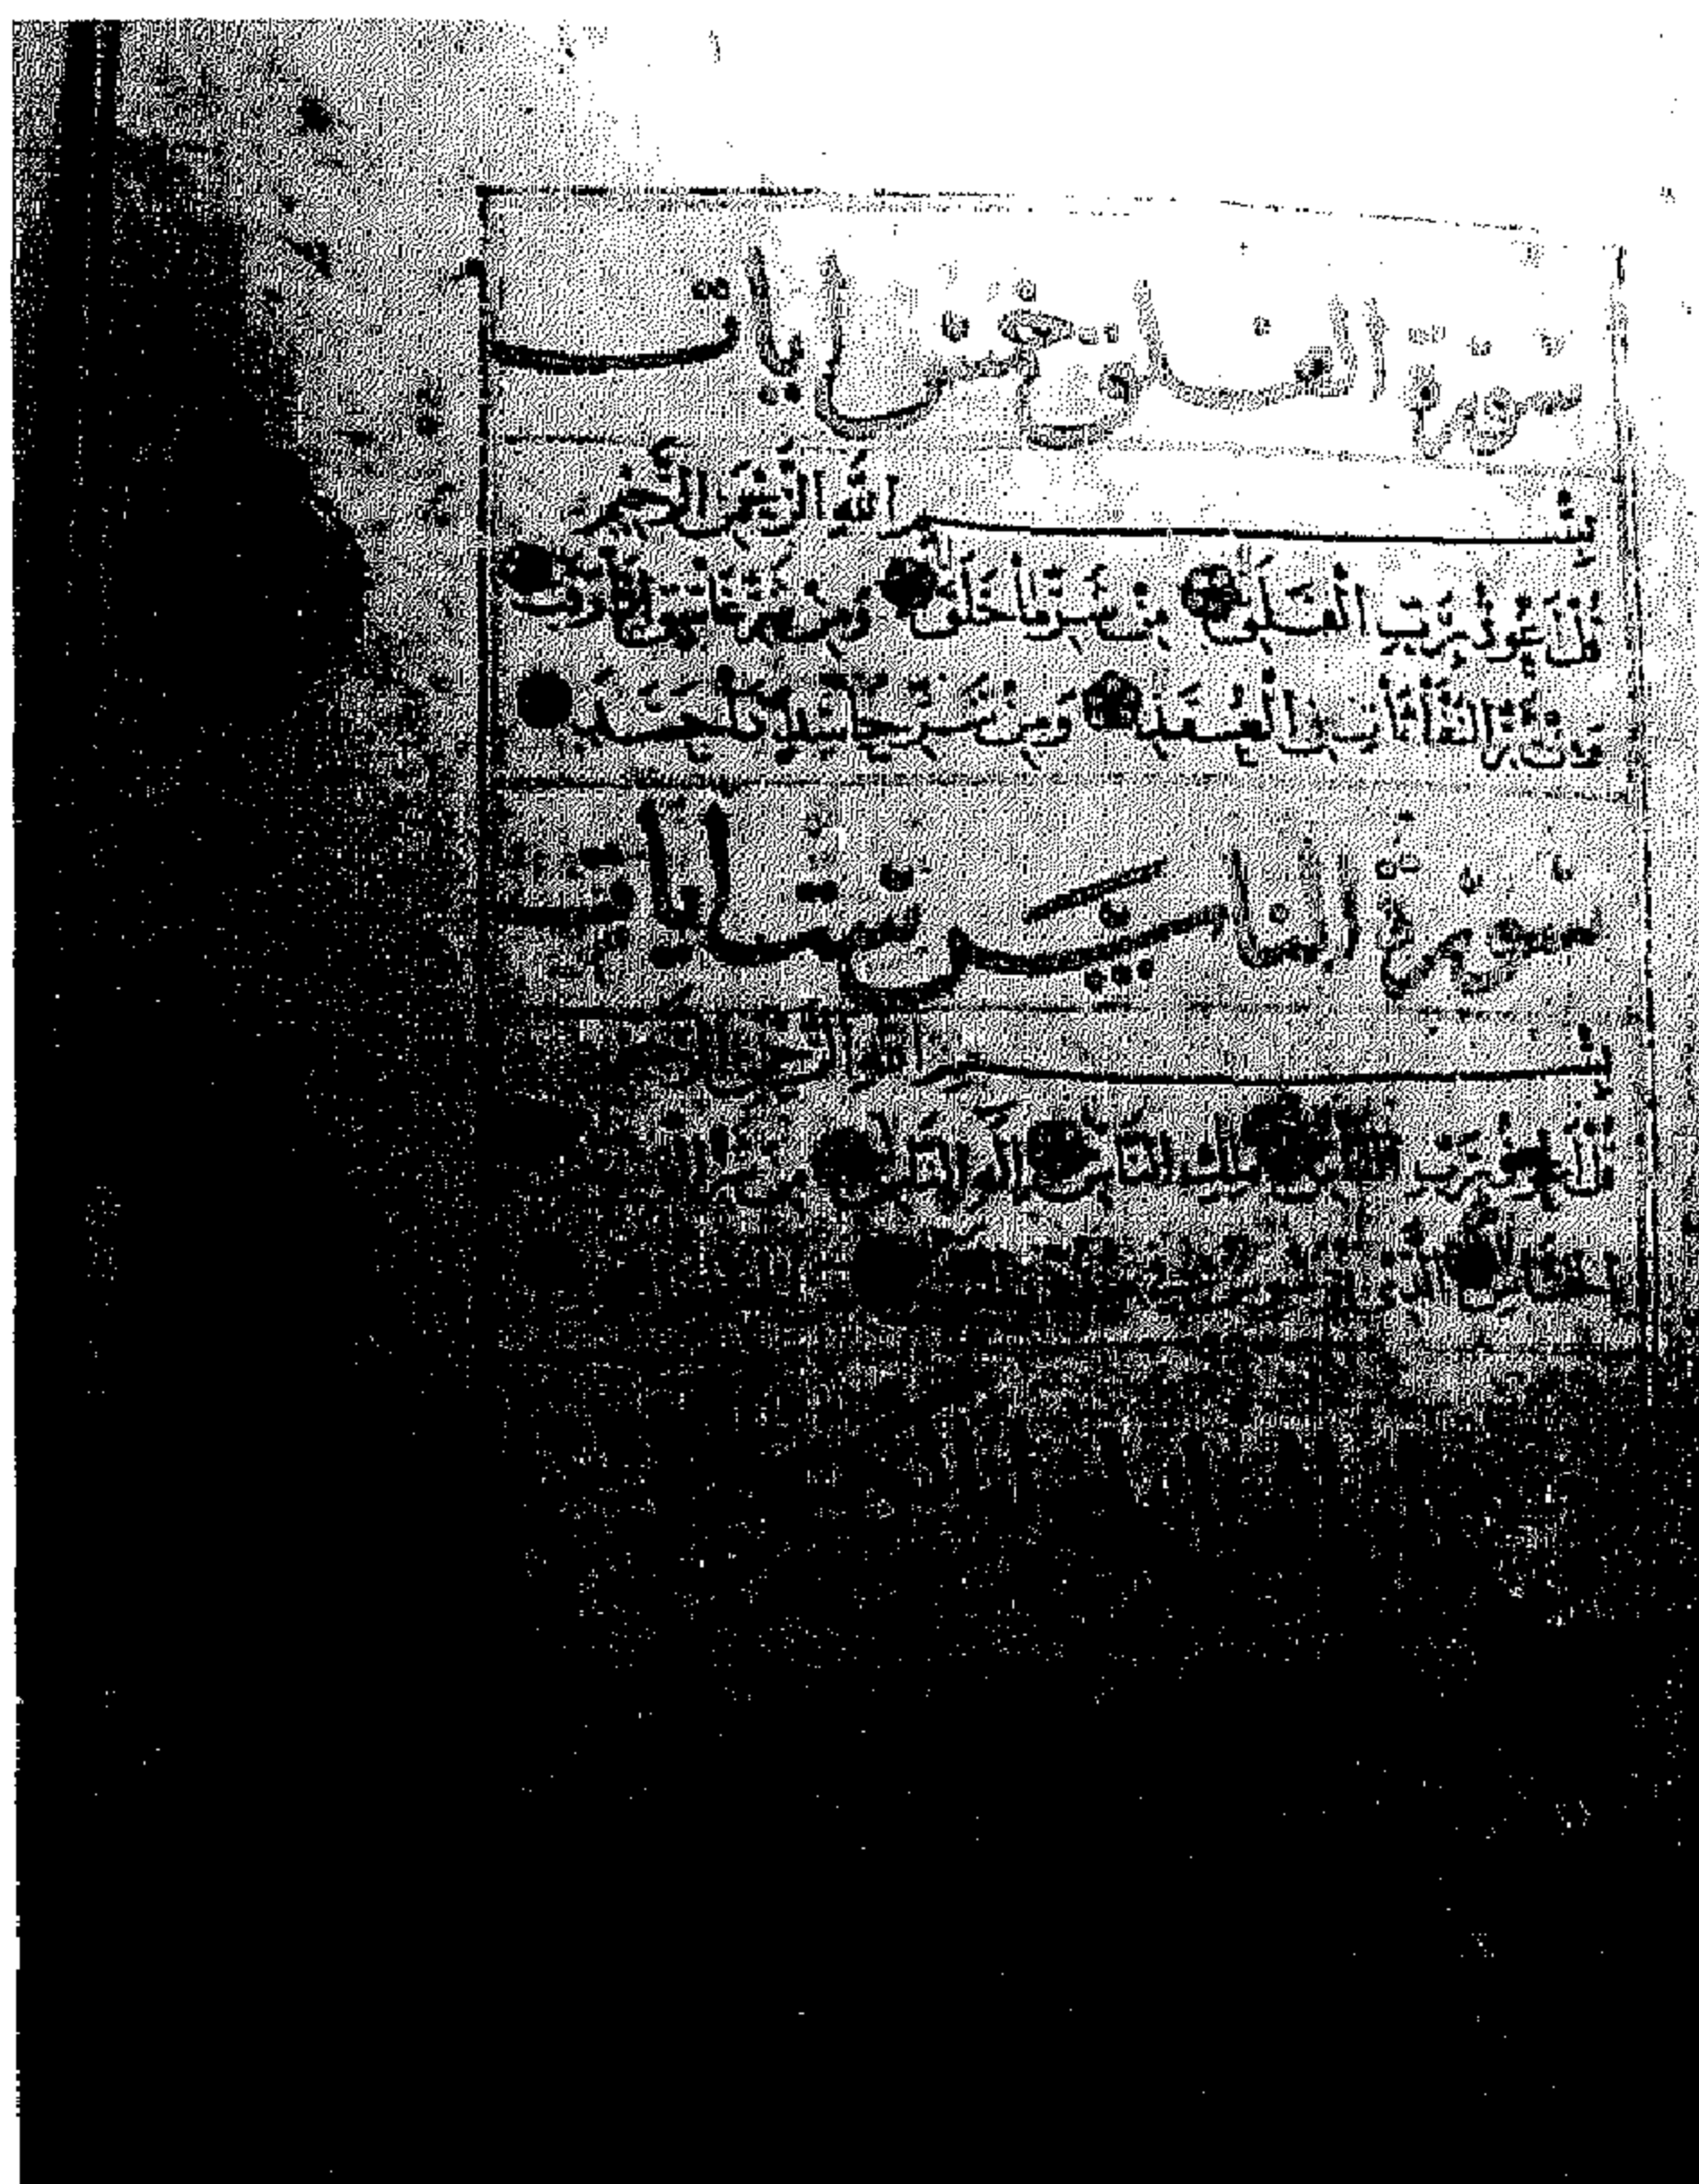 سورة الفلق خمس ايات
بِسْمِ اللَّهِ الرَّحْمَنِ الرَّحِيمِ
قُلْ أَعُوذُ بِرَبِّ الْفَلَقِ مِنْ شَرِّ مَا خَلَقَ وَمِنْ شَرِّ غَاسِقٍ إِذَا وَقَبَ
وَمِنْ شَرِّ النَّفَّاثَاتِ فِي الْعُقَدِ وَمِنْ شَرِّ حَاسِدٍ إِذَا حَسَدَ
سورة الناس ست ايات
بِسْمِ اللَّهِ الرَّحْمَنِ الرَّحِيمِ
قُلْ أَعُوذُ بِرَبِّ النَّاسِ مَلِكِ النَّاسِ إِلَهِ النَّاسِ مِنْ شَرِّ
الْخَنَّاسِ الَّذِي